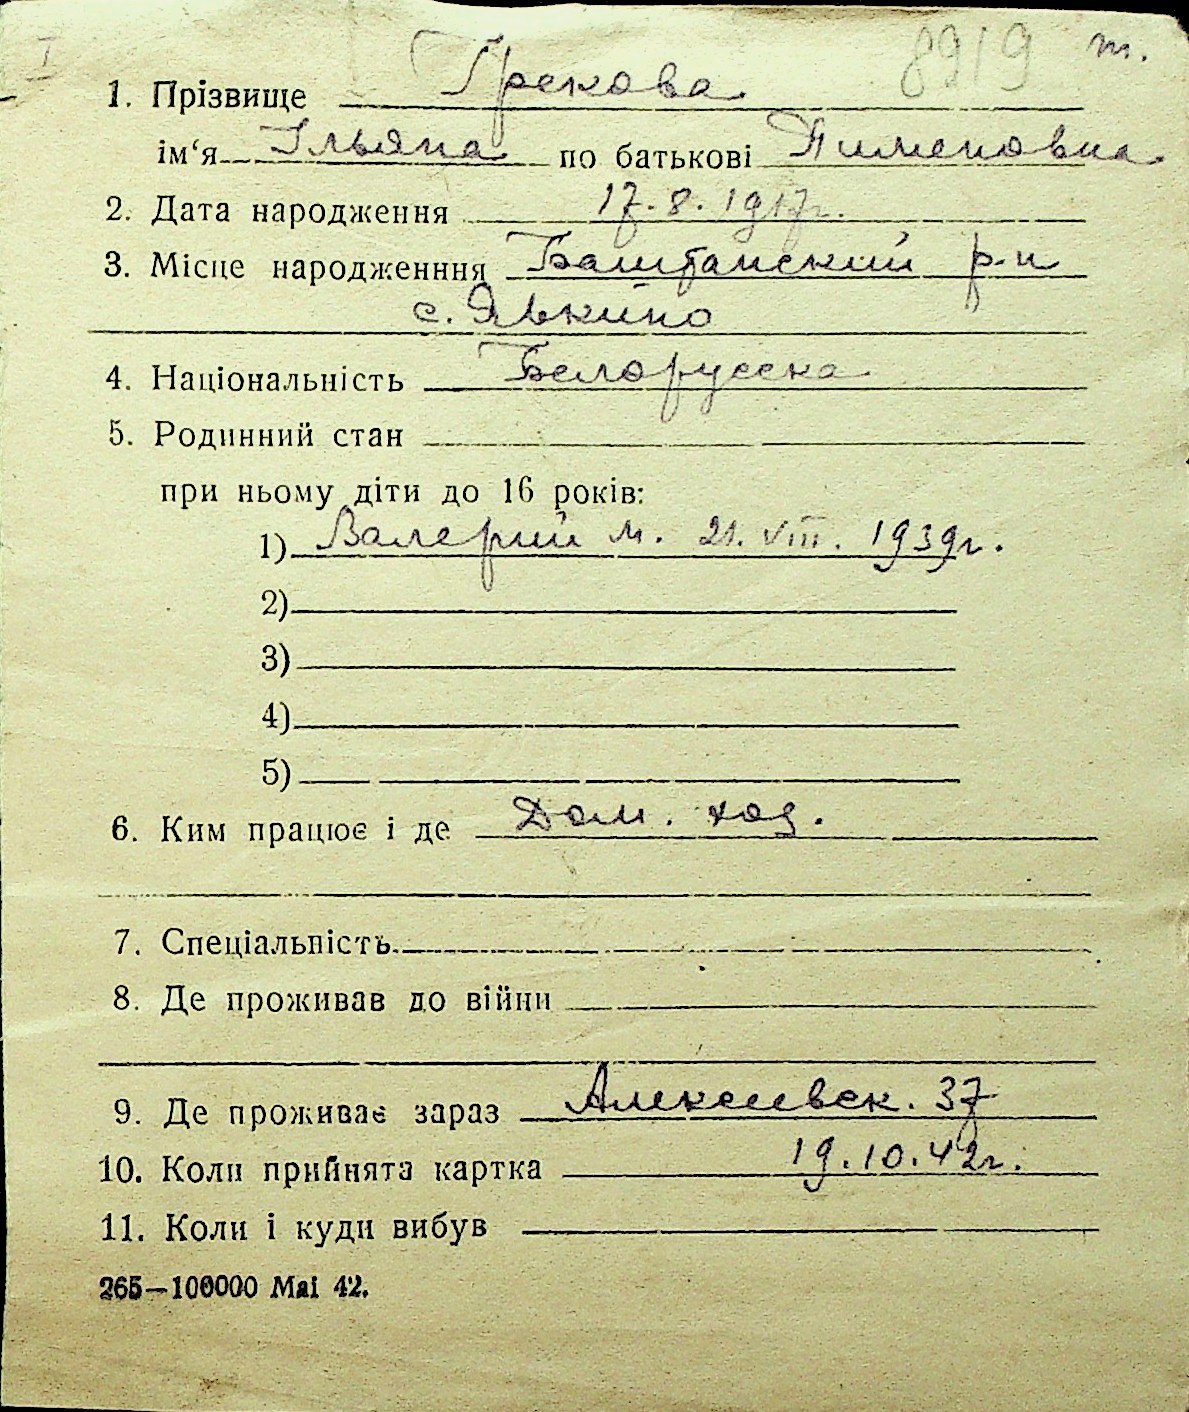 I 8919 т.
1. Прізвище Грекова
ім'я Ульяна по батькові Пименовна
2. Дата народження 17.8.1917г.
3. Місце народженння Баштанский р-н
с. Явкино
4. Національність Белорусска
5. Родинний стан
при ньому діти до 16 років:
1) Валерий м. 21. VIII. 1939г.
2)
3)
4)
5)
6. Ким працює і де Дом. хоз.
7. Спеціальність
8. Де проживав до війни
9. Де проживає зараз Алексеевск. 37
10. Коли прийнята картка 19.10.42г.
11. Коли і куди вибув
265—100000 Mai 42.